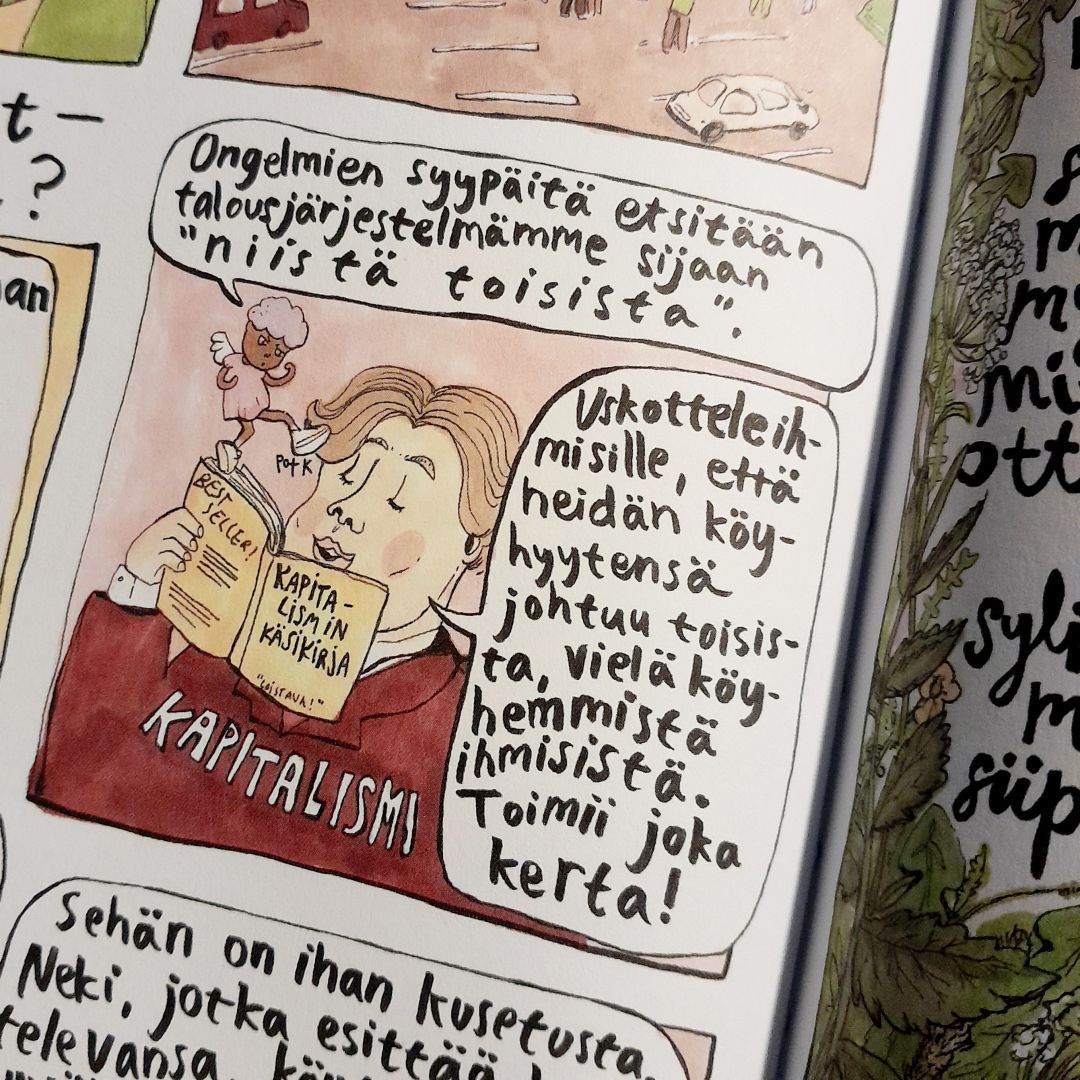 t–
?
Ongelmien syypäitä etsitään
talousjärjestelmämme sijaan
"niistä toisista".
Potk
BEST
SELLER!
KAPITA-
LISMIN
KÄSIKIRJA
"LOISTAVA!"
KAPITALISMI
Uskottele ih-
misille, että
heidän köy-
hyytensä
johtuu toisis-
ta, vielä köy-
hemmistä
ihmisistä.
Toimii joka
kerta!
Sehän on ihan kusetusta.
Neki, jotka esittää
televansa,